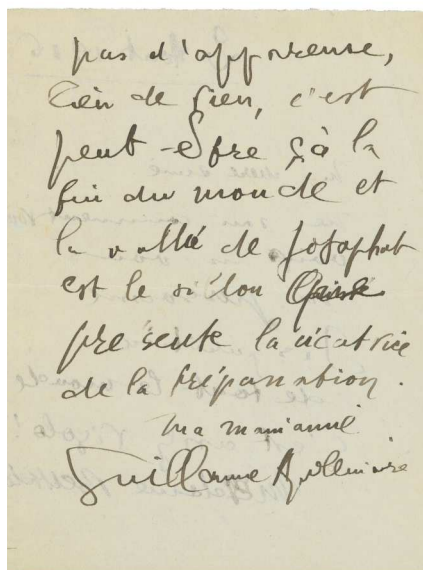 pas d'apparence,
rien de rien, c'est
peut-être çà la
fin du monde et
la vallée de Josaphat
est le sillon
présente la cicatrice
de la trépanation.
Ma main amie
Guillaume Apollinaire